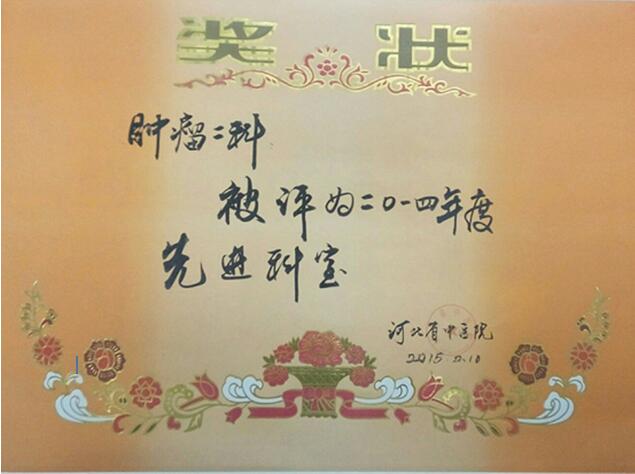 奖状
肿瘤二科
被评为二0一四年度
先进科室
河北省中医院
2015.2.10